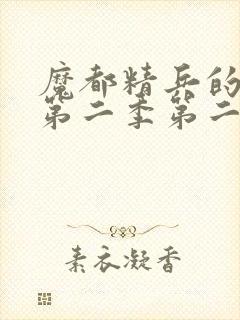 魔都精兵的
第二季第二
素衣凝香